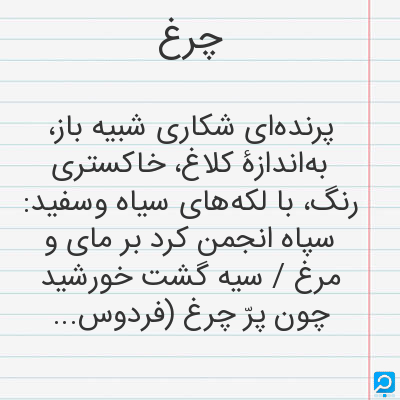 چرغ
پرنده‌ای شکاری شبیه باز،
به‌اندازهٔ کلاغ، خاکستری
رنگ، با لکه‌های سیاه وسفید:
سپاه انجمن کرد بر مای و
مرغ / سیه گشت خورشید
چون پرّ چرغ (فردوس...